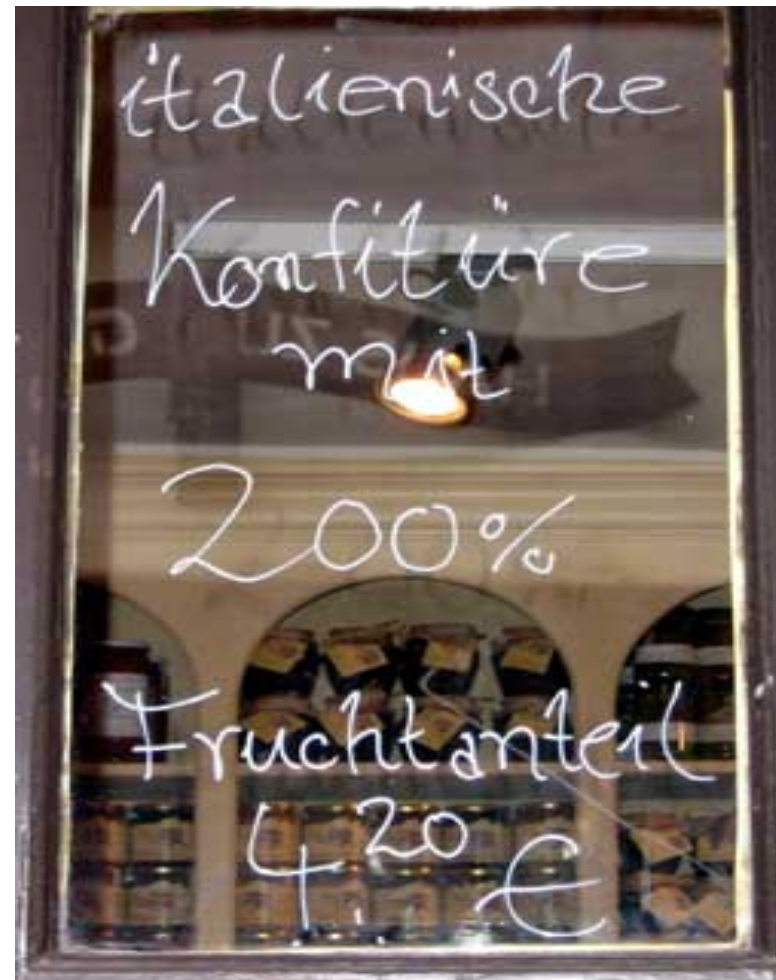 italienische
Konfitüre
mit
200%
Fruchtanteil
4,20 €